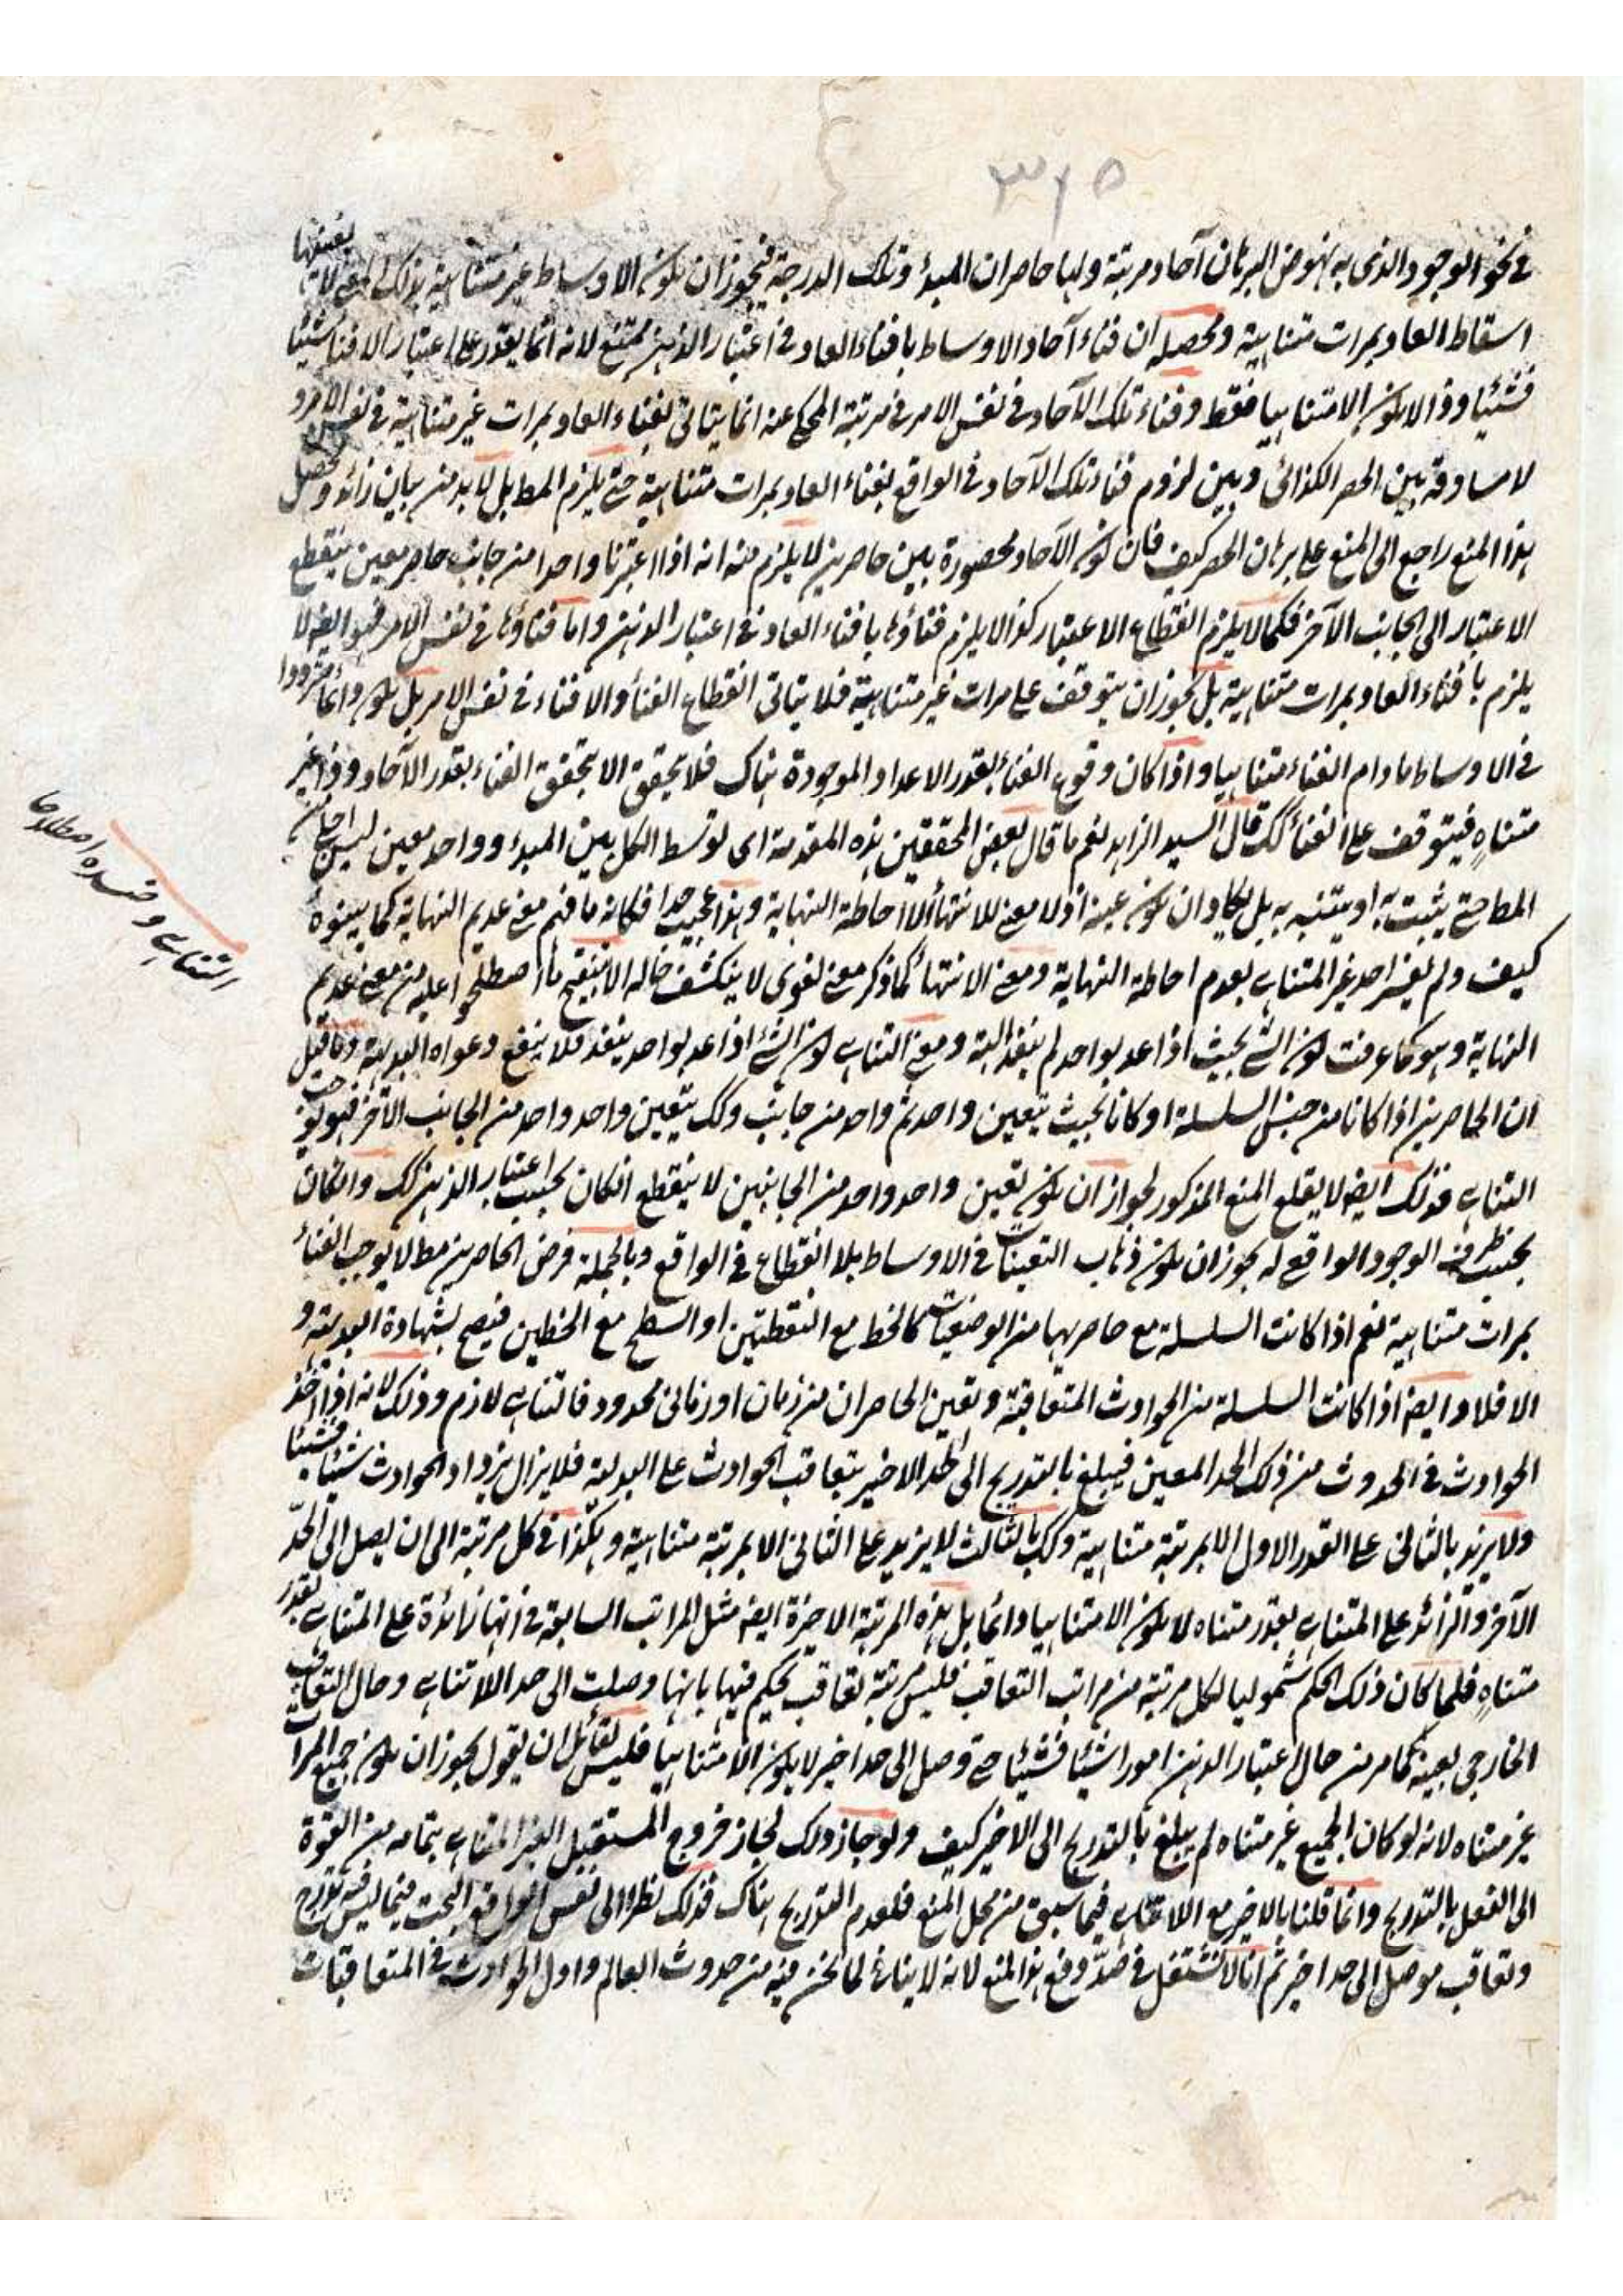 ٣١٥
في نحو الوجود الذي به نهوض البرهان آحاد مرتبة ولها حاصران المبدء وتلك الدرجة فيجوز ان يكون الاوساط غير متناهية بذلك المعنى لا يقتضيها
اسقاط العاد بمرات متناهية ومحصله ان فناء آحاد الاوساط بافناء العاد في اعتبار الذهن ممتنع لانه انما يقدر على اعتبار الافناء شيئا
فشيئا وذا لا يكون الا متناهيا فقط وفناء تلك الآحاد في نفس الامر في مرتبة المحكي عنه انما يتاتى بفناء العاد بمرات غير متناهية في نفس الامر و
لا مساوقة بين الحصر الكذائي وبين لزوم فناء تلك الآحاد في الواقع بفناء العاد بمرات متناهية حتى يلزم المط بل لا بد من بيان زائد ومحصل
هذا المنع راجع الى المنع على برهان الحصر كيف فان كون الآحاد محصورة بين حاصرين لا يلزم منه انه اذا اعتبرنا واحدا من جانب حاصر معين ينقطع
الاعتبار الى الجانب الآخر فكما لا يلزم انقطاع الاعتبار كذا لا يلزم فناؤها بافناء العاد في اعتبار الذهن واما فناؤها في نفس الامر فهو ايضا لا
يلزم بافناء العاد بمرات متناهية بل يجوز ان يتوقف على مرات غير متناهية فلا يتاتى انقطاع الفناء والافناء في نفس الامر بل يكون دائما مترددا
في الاوساط ما دام الفناء متناهيا واذا كان وقوع الفناء بقدر الاعداد الموجودة هناك فلا يتحقق الا بتحقق الفناء بقدر الآحاد وذا غير
متناهٍ فيتوقف على الفناء كك قال السيد الزاهد نعم ما قال بعض المحققين هذه المقدمة اى توسط الكل بين المبدء وواحد معين ليس اجلى من
المط حتى يثبت به او يتنبه به بل يكاد ان يكون عينه اذ لا معنى للانتهاء الا احاطة النهاية وهذا عجيب جدا فكانه ما فهم معنى عديم النهاية كما بينوه
كيف ولم يفسر احد غير المتناهى بعدم احاطة النهاية ومعنى الانتهاء كما ذكر معنى لغوي لا ينكشف حاله الا بتنقيح ما اصطلحوا عليه من معنى عديم
النهاية وهو كما عرفت كون الشئ بحيث اذا عد بواحد لم ينفد البتة ومعنى التناهى كون الشئ اذا عد بواحد ينفد فلا ينفع دعواه البديهة وما قيل
ان الحاصرين اذا كانا من جنس السلسلة او كانا بحيث يتعين واحد ثم واحد من جانب وكك يتعين واحد واحد من الجانب الآخر فهو يوجب
التناهى فذلك ايضا لا يقلع المنع المذكور لجواز ان يكون تعين واحد واحد من الجانبين لا ينقطع ان كان بحسب اعتبار الذهن كك وان كان
بحسب ظرف الوجود الواقعى له يجوز ان يكون ذهاب التعينات في الاوساط بلا انقطاع في الواقع وبالجملة فرض الحاصرين مطلا يوجب الفناء
بمرات متناهية نعم اذا كانت السلسلة مع حاصريها من الوضعيات كالخط مع النقطتين او السطح مع الخطين فيصح بشهادة البديهة و
الا فلا وايضا اذا كانت السلسلة من الحوادث المتعاقبة وتعين الحاصران من زمان او زماني محدود فالتناهى لازم وذلك لانه اذا اخذ
الحوادث في الحدوث من ذلك الحد المعين فيبلغ بالتدريج الى الحد الاخير بتعاقب الحوادث على البدلية فلا يزال يزداد الحوادث شيئا فشيئا
ولا يزيد بالثانى على القدر الاول الا بمرتبة متناهية وكك بالثالث لا يزيد على الثاني الا بمرتبة متناهية وهكذا في كل مرتبة الى ان يصل الى الحد
الآخر والزائد على المتناهى بقدر متناه لا يكون الا متناهيا دائما بل هذه المرتبة الاخيرة ايضا مثل المراتب السابقة في انها زائدة على المتناهى بقدر
متناهٍ فلما كان ذلك الحكم شموليا لكل مرتبة من مراتب التعاقب فليس مرتبة تعاقب يحكم فيها بانها وصلت الى حد اللاتناهى وحال التعاقب
الخارجي بعينه كما مر من حال اعتبار الذهن امورا شيئا فشيئا حتى وصل الى حد اخير لا يكون الا متناهيا فليس لقائل ان يقول يجوز ان يكون جميع المراتب
غير متناه لانه لو كان الجميع غير متناه لم يبلغ بالتدريج الى الاخير كيف ولو جاز ذلك لجاز خروج المستقبل الغير المتناهى بتمامه من القوة
الى الفعل بالتدريج وانما قلنا بالاخير مع اللاتناهى فيما سبق من محل المنع فلعدم التدريج هناك فذلك نظرا الى نفس الواقع البحت فيما ليس فيه تدريج
وتعاقب موصل الى حد اخير ثم انا لا نشتغل في صدد دفع هذا المنع لانه لا ينافى لما نحن فيه من حدوث العالم واول الحوادث في المتعاقبات
التناهى و اصطلاحا